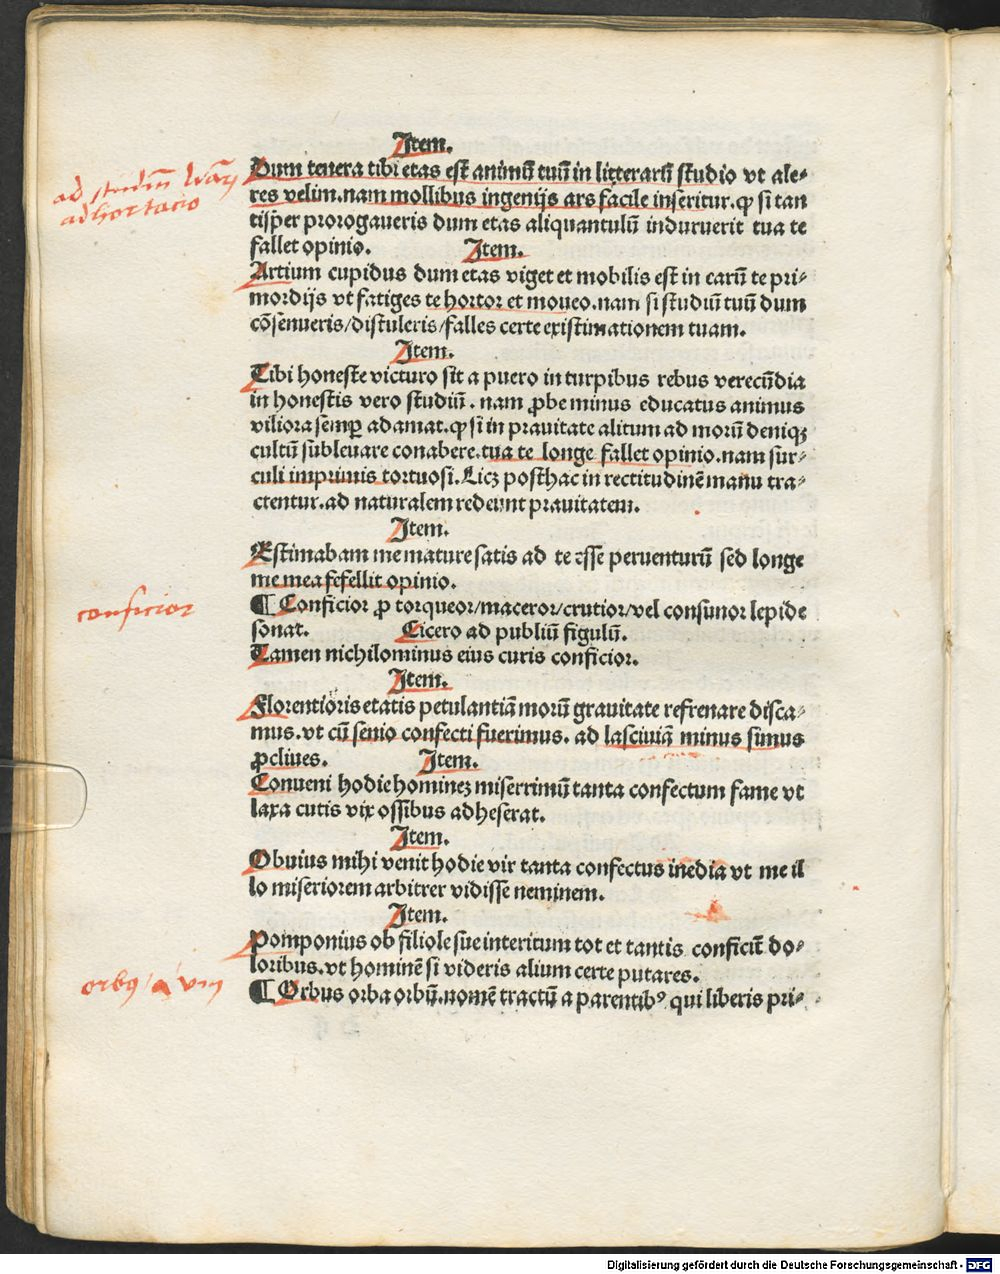 Item.
Dum tenera tibi etas est animũ tuũ in litterarũ studio vt ale⸗
res velim.nam mollibus ingenijs ars facile inseritur.ꝙ si tan
tisper prorogaueris dum etas aliquantulũ induruerit tua te
fallet opinio. Item.
Artium cupidus dum etas viget et mobilis est in earũ te pri⸗
mordijs vt fatiges te hortor et moueo.nam si studiũ tuũ dum
cõsenueris/distuleris/falles certe existimationem tuam.
Item.
Tibi honeste victuro sit a puero in turpibus rebus verecũdia
in honestis vero studiũ. nam ꝓbe minus educatus animus
viliora semꝑ adamat.ꝙ si in prauitate alitum ad morũ deniqꝫ
cultũ subleuare conabere.tua te longe fallet opinio.nam sur⸗
culi imprimis tortuosi.Licꝫ posthac in rectitudinẽ manu tra⸗
ctentur.ad naturalem redeunt prauitatem.
Item.
Estimabam me mature satis ad te esse peruenturũ sed longe
me mea fefellit opinio.
¶ Conficior ꝓ torqueor/maceror/crutior/vel consunor lepide
sonat. Cicero ad publiũ figulũ.
Tamen nichilominus eius curis conficior.
Item.
Florentioris etatis petulantiã morũ grauitate refrenare disca⸗
mus.vt cũ senio confecti fuerimus. ad lasciuiã minus simus
ꝓcliues. Item.
Conueni hodie homineꝫ miserrimũ tanta confectum fame vt
laxa cutis vix ossibus adheserat.
Item.
Obuius mihi venit hodie vir tanta confectus inedia vt me il
lo miseriorem arbitrer vidisse neminem.
Item.
Pomponius ob filiole sue interitum tot et tantis conficit̃ do⸗
loribus.vt hominẽ si videris alium certe putares.
¶ Orbus orba orbũ.nomẽ tractũ a parentibꝰ qui liberis pri⸗
ad studiũ
adhortacio
conficior
orbꝰ / a / vm
Digitalisierung gefördert durch die Deutsche Forschungsgemeinschaft - DFG